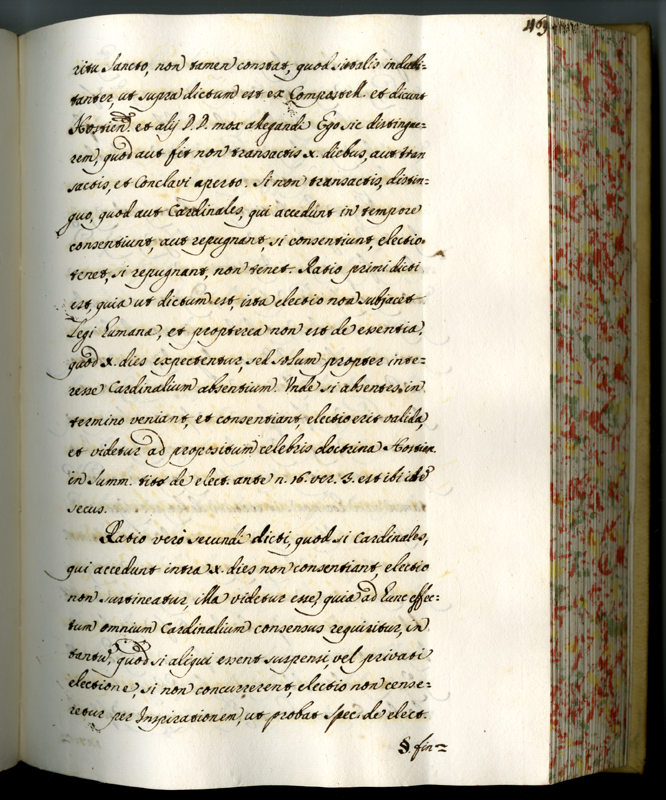 ritu Sancto, non tamen constat, quod sit talis indubi=
tanter, ut supra dictum est ex Compostell. et dicunt
Hostien. et alij D.D. mox allegandi. Ego sic distingue=
rem, quod aut fit non transactis x. diebus, aut tran
sactis, et Conclavi aperto. Si non transactis, distin=
guo, quod aut Cardinales, qui accedunt in tempore
consentiunt, aut repugnant, si consentiunt, electio
tenet, si repugnant, non tenet. Ratio primi dicti
est, quia ut dictum est, ista electio non subjacet
Legi humana, et propterea non est de essentia,
quod x. dies expectentur, sed solum propter inte=
resse Cardinalium absentium. Unde si absentes in
termino veniant, et consentiant, electio erit valida,
et videtur ad propositum celebris doctrina Hostien.
in Summ. tit. de elect. ante n. 16. ver. 3. est ibi
secus.
Ratio verò secundi dicti, quod si Cardinales,
qui accedunt intra x. dies non consentiant, electio
non sustineatur, illa videtur esse, quia ad hunc effec=
tum omnium Cardinalium consensus requiritur, in
tantũ, quod si aliqui essent suspensi, vel privati
electione, si non concurrerent, electio non cense=
retur per Inspirationem, ut probat Spec. de elect.
§. fin=